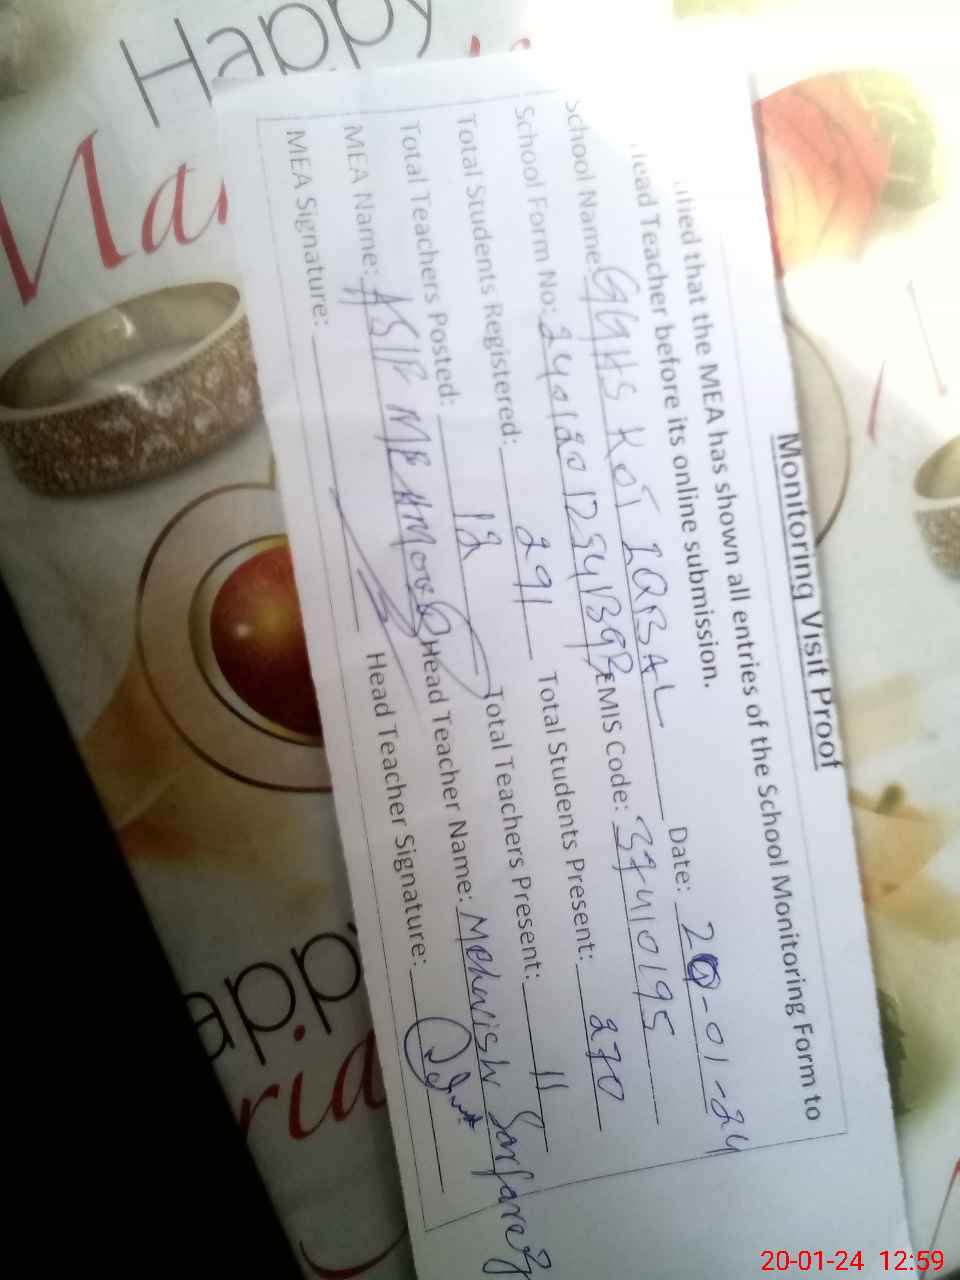 Monitoring Visit Proof
ified that the MEA has shown all entries of the School Monitoring Form to
Head Teacher before its online submission.
School Name: GGHS KOT IQBAL Date: 20-01-24
School Form No: EMIS Code: 37410195
Total Students Registered: 291 Total Students Present: 270
Total Teachers Posted: 12 Total Teachers Present: 11
MEA Name: ASIF MEHMOOD Head Teacher Name: Mehwish Sarfaraz
MEA Signature: Head Teacher Signature:
Happy
Happy
20-01-24 12:59